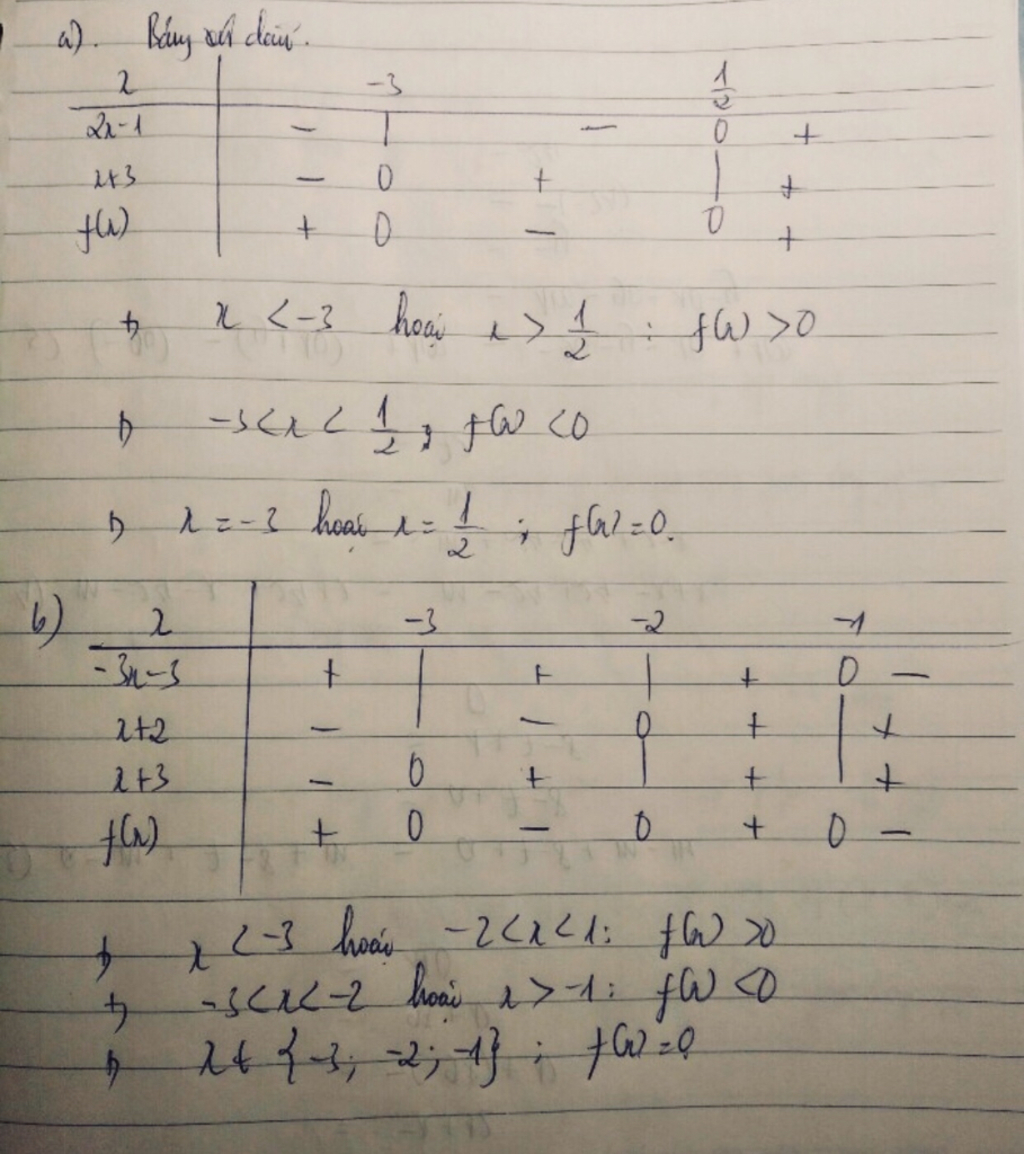 a). Bảng xét dấu.
x -3 1/2
2x-1 - | - 0 +
x+3 - 0 + | +
f(x) + 0 - 0 +
+) x < -3 hoặc x > 1/2 : f(x) > 0
+) -3 < x < 1/2 ; f(x) < 0
+) x = -3 hoặc x = 1/2 ; f(x) = 0.
b) x -3 -2 -1
-3x-3 + | + | + 0 -
x+2 - | - 0 + | +
x+3 - 0 + | + | +
f(x) + 0 - 0 + 0 -
+) x < -3 hoặc -2 < x < 1 : f(x) > 0
+) -3 < x < -2 hoặc x > -1 : f(x) < 0
+) x ∈ {-3; -2; -1} ; f(x) = 0